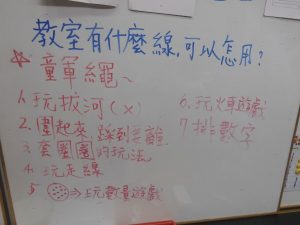 教室有什麼線,可以怎用?
☆童軍繩~
1.玩拔河(×)
2.圍起來,踩到要離
3.套圈圈的玩法
4.玩走線
5.⇒玩數量遊戲
6.玩火車遊戲
7.排數字